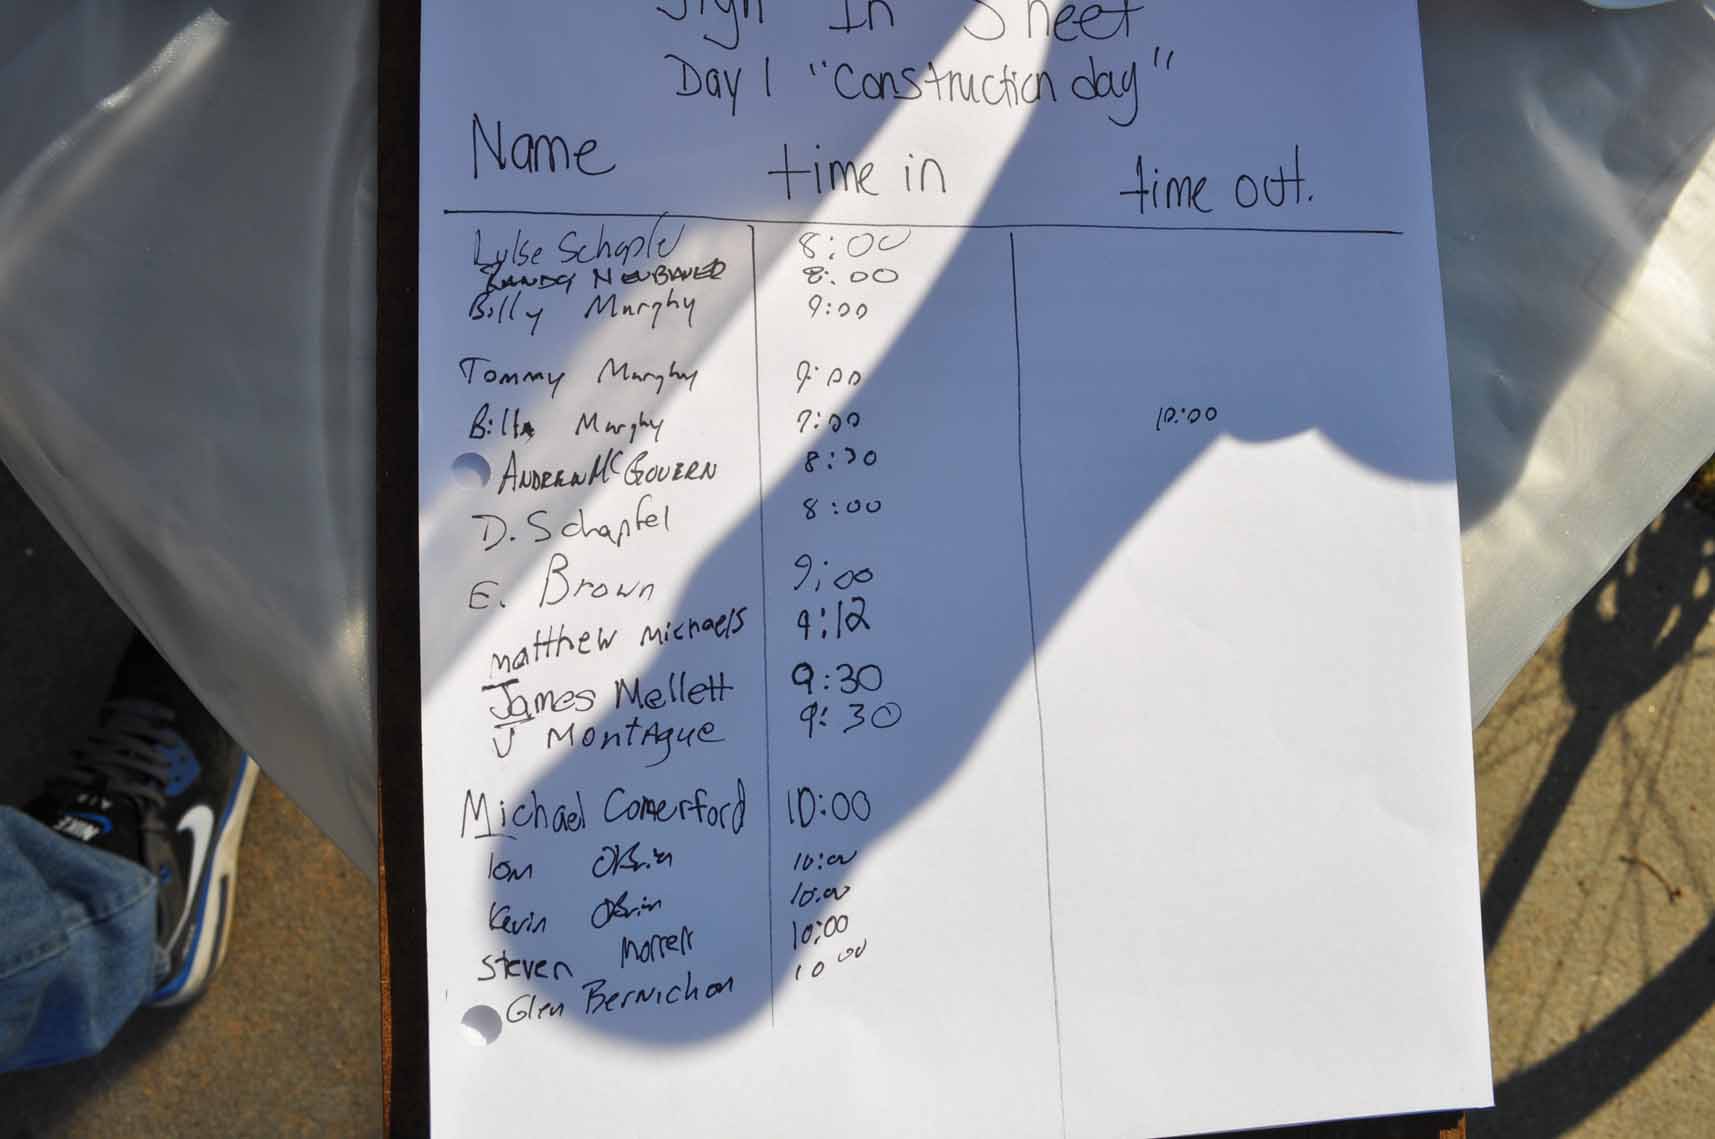 Sign In Sheet
Day 1 "Construction day"
Name time in time out.
Schapfel 8:00
RANDY NEUBAUER 8:00
Billy Murphy 9:00
Tommy Murphy 9:00
Murphy 9:00 10:00
ANDREW McGOVERN 8:30
D. Schapfel 8:00
E. Brown 9:00
Matthew Michaels 9:12
James Mellett 9:30
J Montague 9:30
Michael Comerford 10:00
Tom OBrien 10:00
Kevin OBrien 10:00
Steven 10:00
Glen Bernichon 10 00
NIKE
AIR